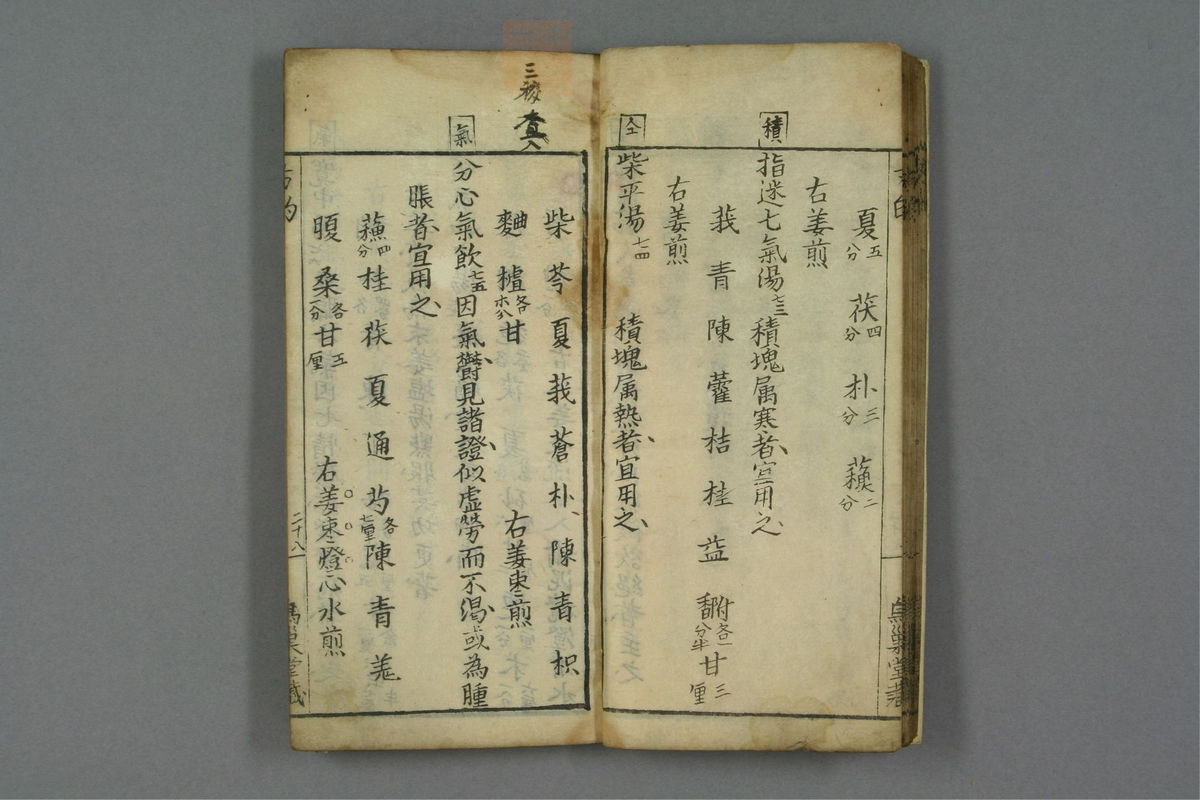 夏五分 茯四分 朴三分 蘓二分
右姜煎
積
指迷七氣湯七三 積塊属寒者宜用之
莪 青 陳 藿 桔 桂 益 香附各一分半 甘三厘
右姜煎
仝
柴平湯七四 積塊属熱者宜用之
柴 芩 夏 莪 蒼 朴 陳 青 枳
麯 樝各 甘 右姜枣煎
氣
分心氣飲七五 因氣鬱見諸證似虚勞而不渇或為腫
脹者宜用之
蘓四分 桂 茯 夏 通 芍各七厘 陳 青 羗
腹 桑各一分 甘五厘 右姜枣燈心水煎
二十八
烏巢堂藏
三